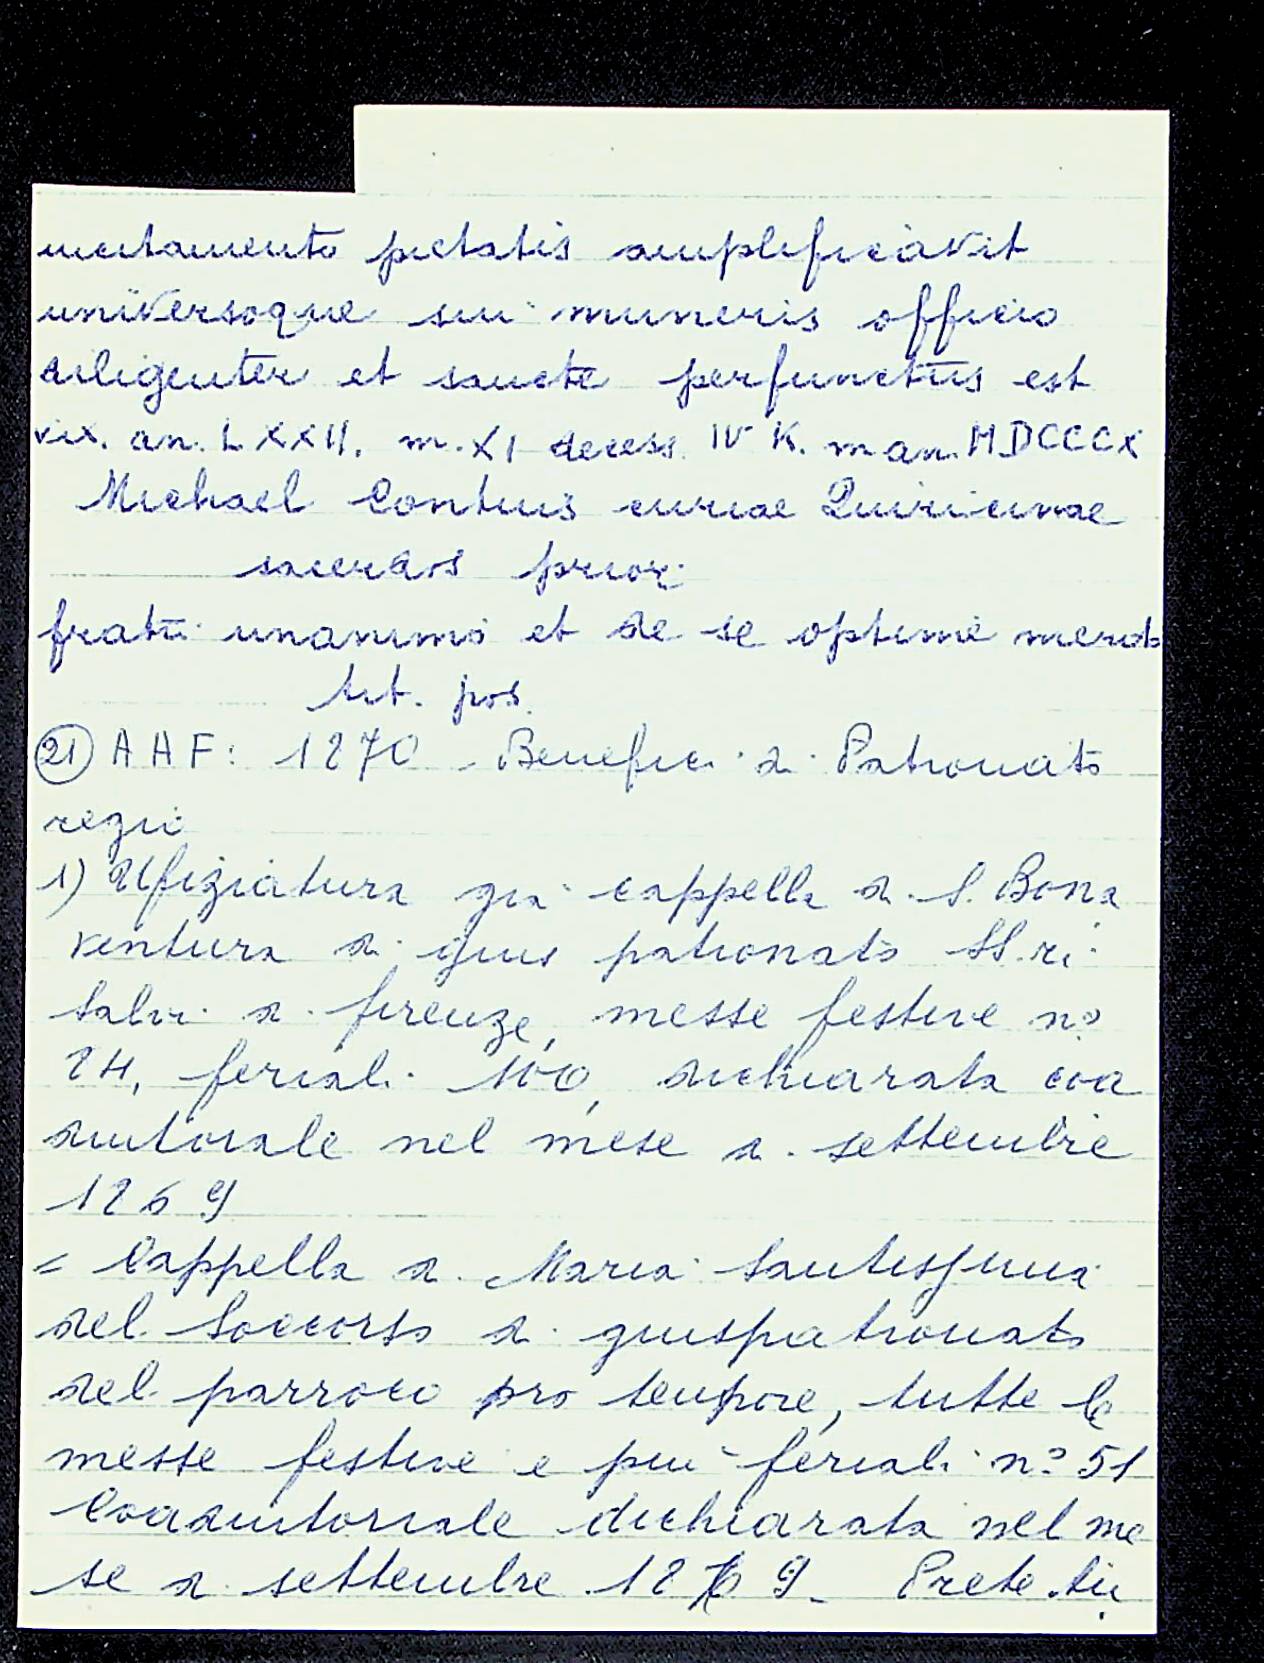 incitamento pietatis amplificavit
universoque sui muneris officio
diligenter et sancte perfunctus est
vix. an. LXXII. m. XI decess. IV K. m an. MDCCCX
Michael Contius curiae Quiricinae
sacerdos prior
fratri unanimo et de se optime merito
tit. pos.
21) A A F: 1870 - Benefici di Patronato
regio
1) Ufiziatura già cappella di S. Bona
ventura di gius patronato SS.ri
Salvi di Firenze, messe festive n°
24, feriali 100, dichiarata coa
diutorale nel mese di settembre
1869
= Cappella di Maria Santissima
del Soccorso di giuspatronato
del parroco pro tempore, tutte le
messe festive e più feriali n° 51
Coadiutoriale dichiarata nel me
se di settembre 1869. Prete tit